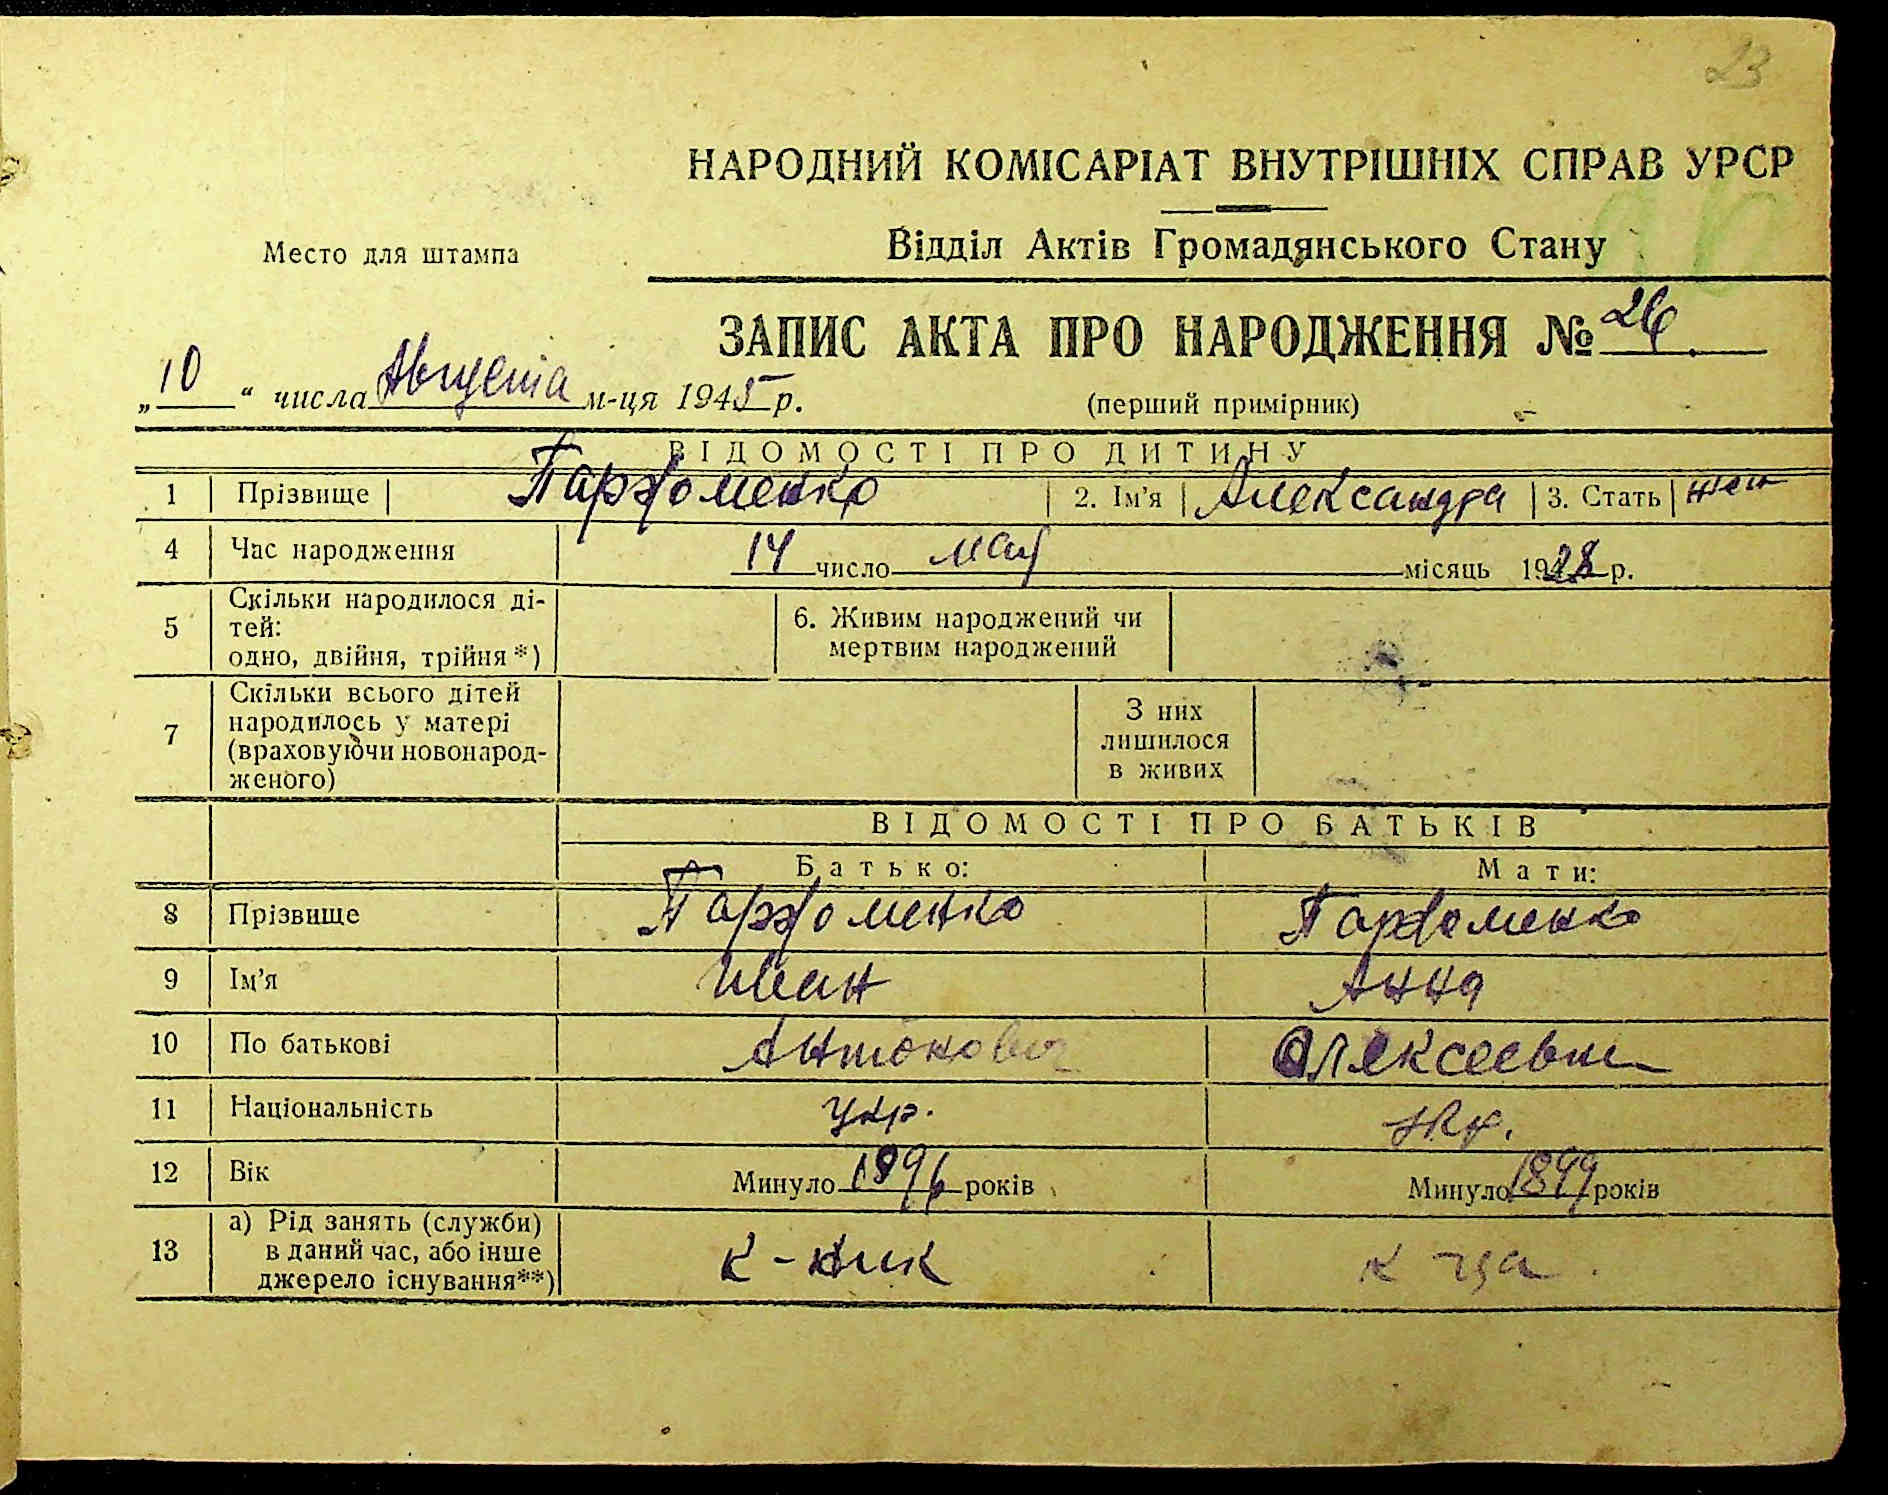 23
НАРОДНИЙ КОМІСАРІАТ ВНУТРІШНІХ СПРАВ УРСР
Место для штампа
Відділ Актів Громадянського Стану
ЗАПИС АКТА ПРО НАРОДЖЕННЯ № 26
„10“ числа Августа м-ця 1945 р.
(перший примірник)
ВІДОМОСТІ ПРО ДИТИНУ
1 Прізвище Парфоменко 2. Ім'я Александра 3. Стать жен
4 Час народження 14 число мая місяць 1928 р.
5 Скільки народилося ді-
тей:
одно, двійня, трійня*)
6. Живим народжений чи
мертвим народжений
7 Скільки всього дітей
народилось у матері
(враховуючи новонарод-
женого)
З них
лишилося
в живих
ВІДОМОСТІ ПРО БАТЬКІВ
Батько: Мати:
8 Прізвище Парфоменко Парфоменко
9 Ім'я Иван Анна
10 По батькові Антонович Алексеевна
11 Національність укр. укр.
12 Вік Минуло 1896 років Минуло 1899 років
13 а) Рід занять (служби)
в даний час, або інше
джерело існування**)
к-ник к-ца